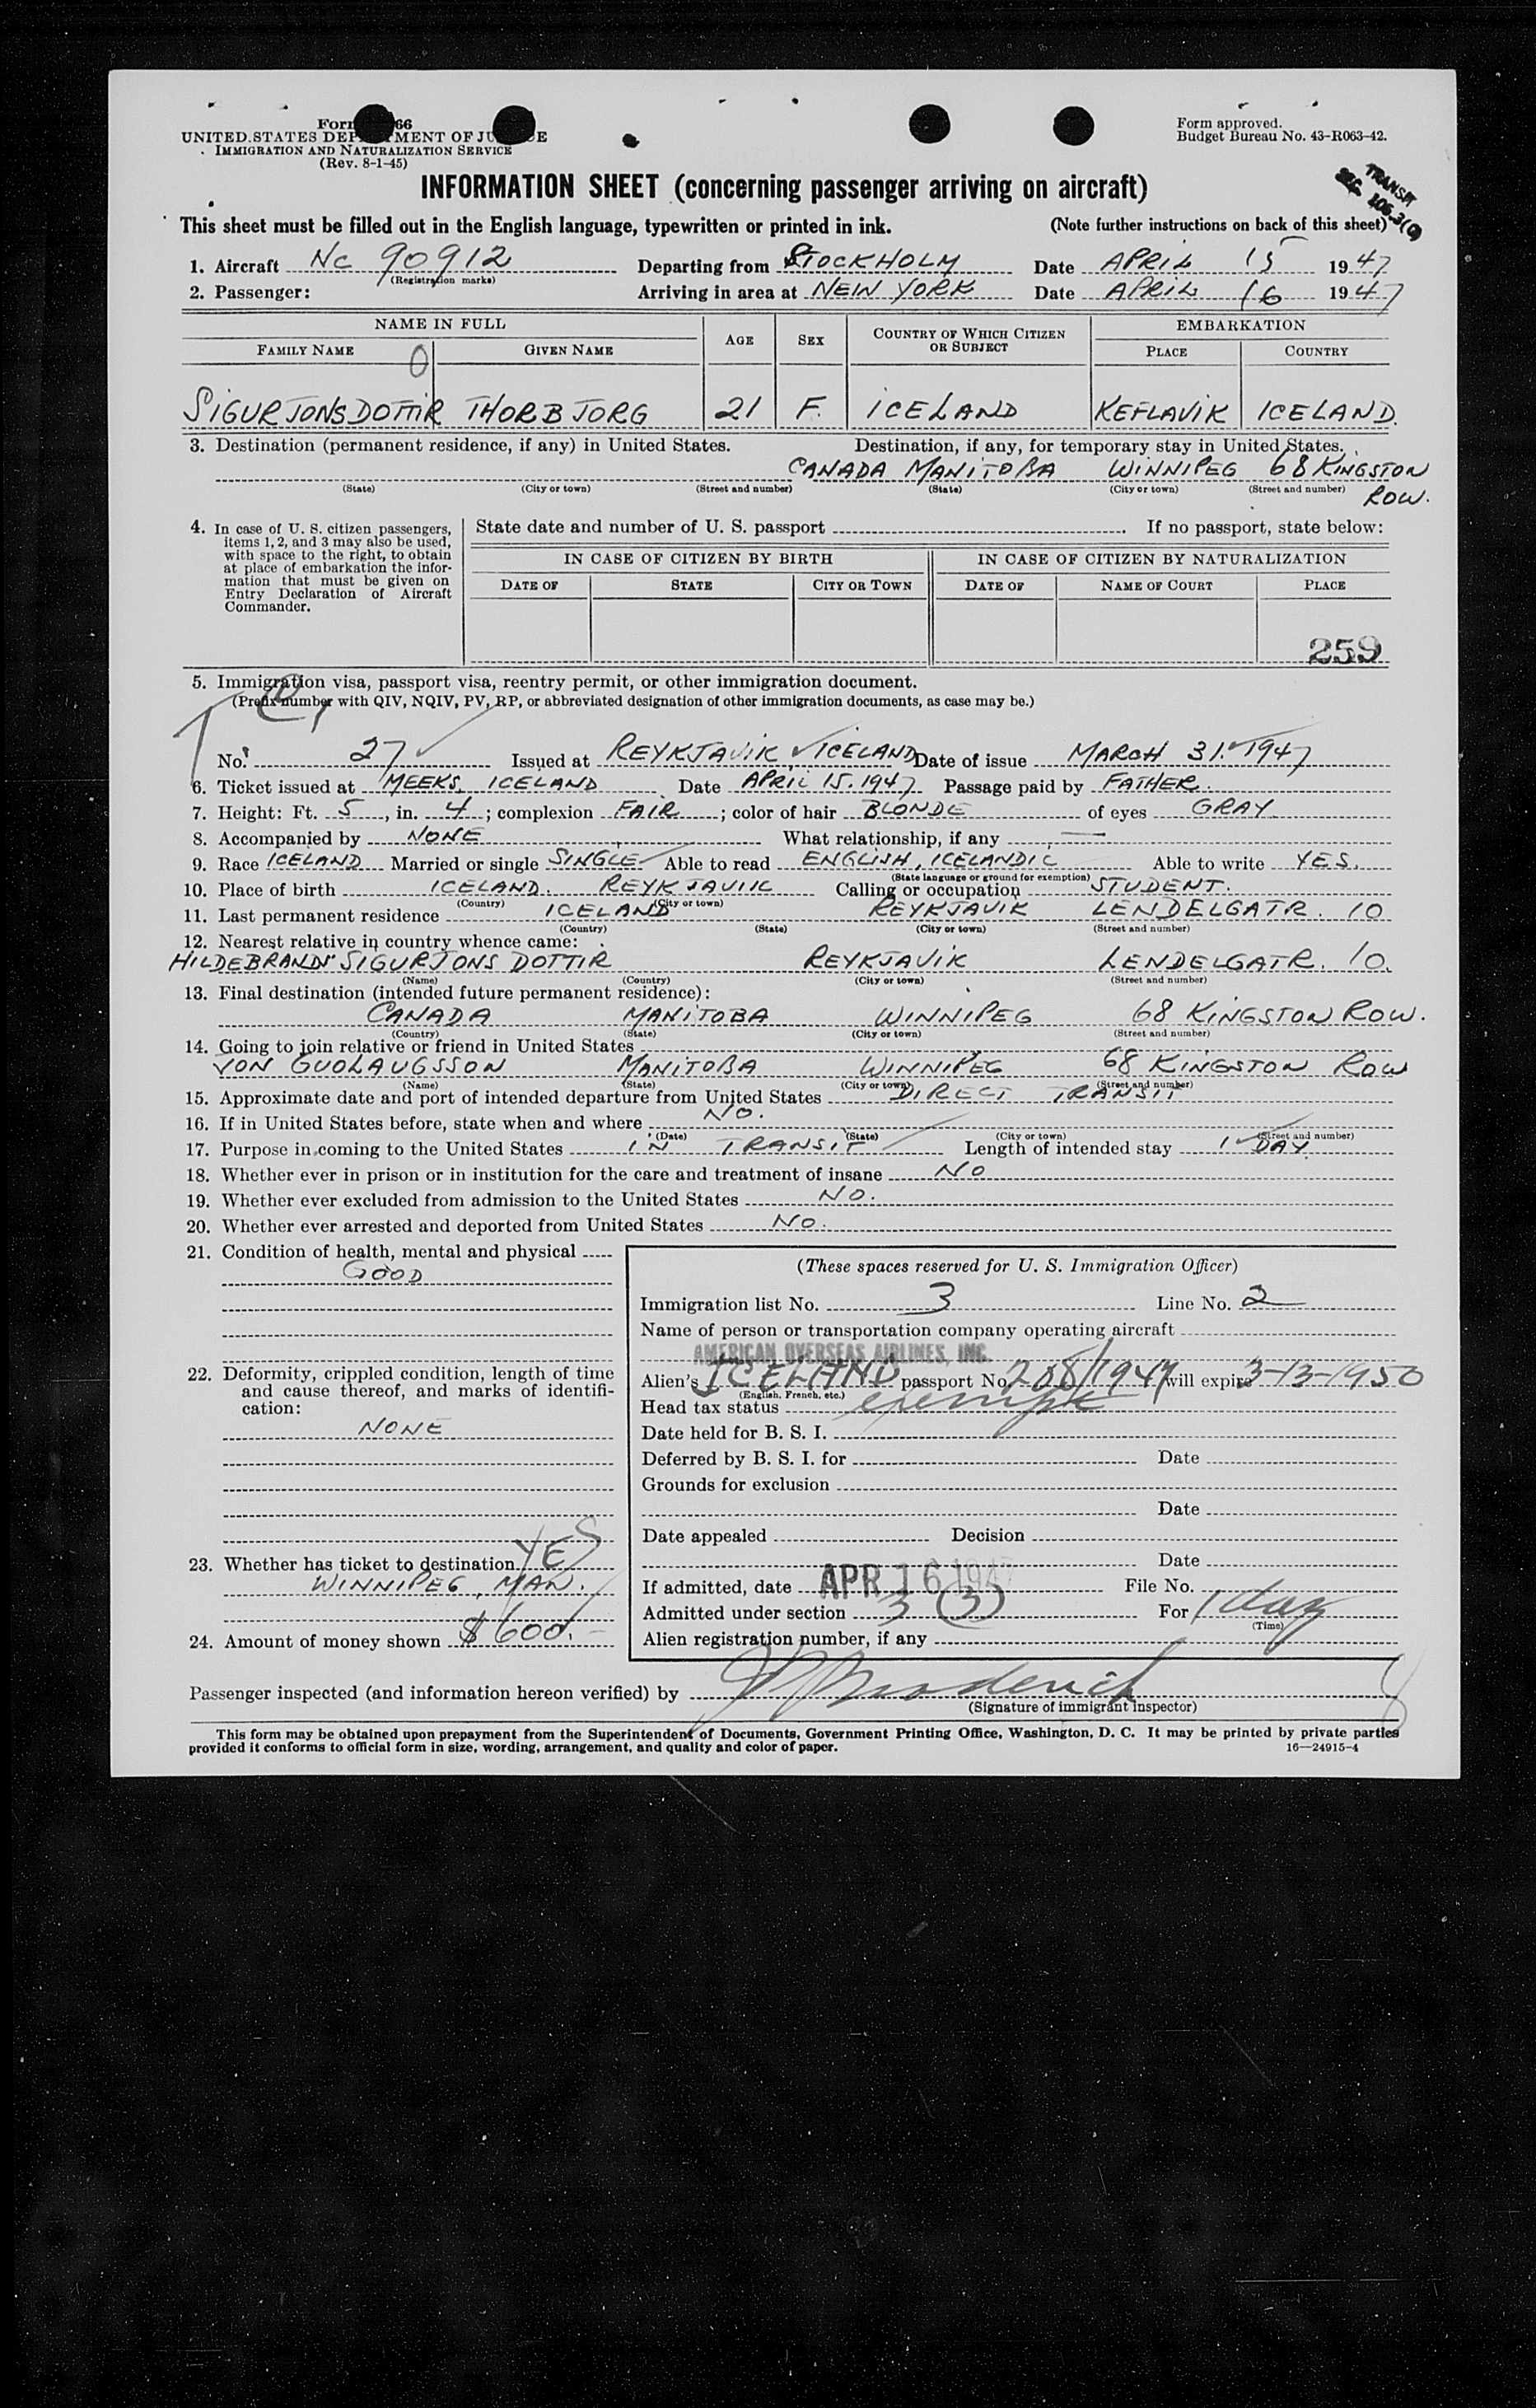 Form 66
UNITED STATES DEPARTMENT OF JUSTICE
IMMIGRATION AND NATURALIZATION SERVICE
(Rev. 8-1-45)
Form approved.
Budget Bureau No. 43-R063-42.
TRANSIT
SEC 106.3(C)
INFORMATION SHEET (concerning passenger arriving on aircraft)
This sheet must be filled out in the English language, typewritten or printed in ink. (Note further instructions on back of this sheet)
1. Aircraft NC 90912 Departing from STOCKHOLM Date APRIL 15 1947
(Registration marks)
2. Passenger: Arriving in area at NEW YORK Date APRIL 16 1947
NAME IN FULL AGE SEX COUNTRY OF WHICH CITIZEN OR SUBJECT EMBARKATION
FAMILY NAME GIVEN NAME PLACE COUNTRY
SIGURJONSDOTTIR THORBJORG 21 F. ICELAND KEFLAVIK ICELAND.
3. Destination (permanent residence, if any) in United States. Destination, if any, for temporary stay in United States.
CANADA MANITOBA WINNIPEG 68 KINGSTON ROW.
(State) (City or town) (Street and number) (State) (City or town) (Street and number)
4. In case of U. S. citizen passengers, items 1, 2, and 3 may also be used, with space to the right, to obtain at place of embarkation the information that must be given on Entry Declaration of Aircraft Commander.
State date and number of U. S. passport If no passport, state below:
IN CASE OF CITIZEN BY BIRTH IN CASE OF CITIZEN BY NATURALIZATION
DATE OF STATE CITY OR TOWN DATE OF NAME OF COURT PLACE
259
5. Immigration visa, passport visa, reentry permit, or other immigration document.
(Prefix number with QIV, NQIV, PV, RP, or abbreviated designation of other immigration documents, as case may be.)
No. 27 Issued at REYKJAVIK, ICELAND Date of issue MARCH 31. 1947
6. Ticket issued at MEEKS, ICELAND Date APRIL 15. 1947 Passage paid by FATHER.
7. Height: Ft. 5, in. 4; complexion FAIR; color of hair BLONDE of eyes GRAY
8. Accompanied by NONE What relationship, if any —
9. Race ICELAND Married or single SINGLE Able to read ENGLISH, ICELANDIC Able to write YES.
(State language or ground for exemption)
10. Place of birth ICELAND. REYKJAVIK Calling or occupation STUDENT.
(Country) (City or town)
11. Last permanent residence ICELAND REYKJAVIK LENDELGATR. 10
(Country) (State) (City or town) (Street and number)
12. Nearest relative in country whence came:
HILDEBRANDR SIGURJONS DOTTIR REYKJAVIK LENDELGATR. 10.
(Name) (Country) (City or town) (Street and number)
13. Final destination (intended future permanent residence):
CANADA MANITOBA WINNIPEG 68 KINGSTON ROW.
(Country) (State) (City or town) (Street and number)
14. Going to join relative or friend in United States
JON GUOLAUGSSON MANITOBA WINNIPEG 68 KINGSTON ROW
(Name) (State) (City or town) (Street and number)
15. Approximate date and port of intended departure from United States DIRECT TRANSIT
16. If in United States before, state when and where NO.
(Date) (State) (City or town) (Street and number)
17. Purpose in coming to the United States IN TRANSIT Length of intended stay 1 DAY
18. Whether ever in prison or in institution for the care and treatment of insane NO
19. Whether ever excluded from admission to the United States NO.
20. Whether ever arrested and deported from United States NO.
21. Condition of health, mental and physical
GOOD
22. Deformity, crippled condition, length of time and cause thereof, and marks of identification:
NONE
23. Whether has ticket to destination YES
WINNIPEG, MAN.
24. Amount of money shown $600.—
(These spaces reserved for U. S. Immigration Officer)
Immigration list No. 3 Line No. 2
Name of person or transportation company operating aircraft
AMERICAN OVERSEAS AIRLINES, INC.
Alien's ICELAND passport No. 208/1947 will expire 3-13-1950
(English, French, etc.)
Head tax status exempt
Date held for B. S. I.
Deferred by B. S. I. for Date
Grounds for exclusion
Date
Date appealed Decision
Date
If admitted, date APR 16 1947 File No.
Admitted under section 3 (3) For 1 day
(Time)
Alien registration number, if any
Passenger inspected (and information hereon verified) by
(Signature of immigrant inspector)
This form may be obtained upon prepayment from the Superintendent of Documents, Government Printing Office, Washington, D. C. It may be printed by private parties
provided it conforms to official form in size, wording, arrangement, and quality and color of paper. 16—24915-4